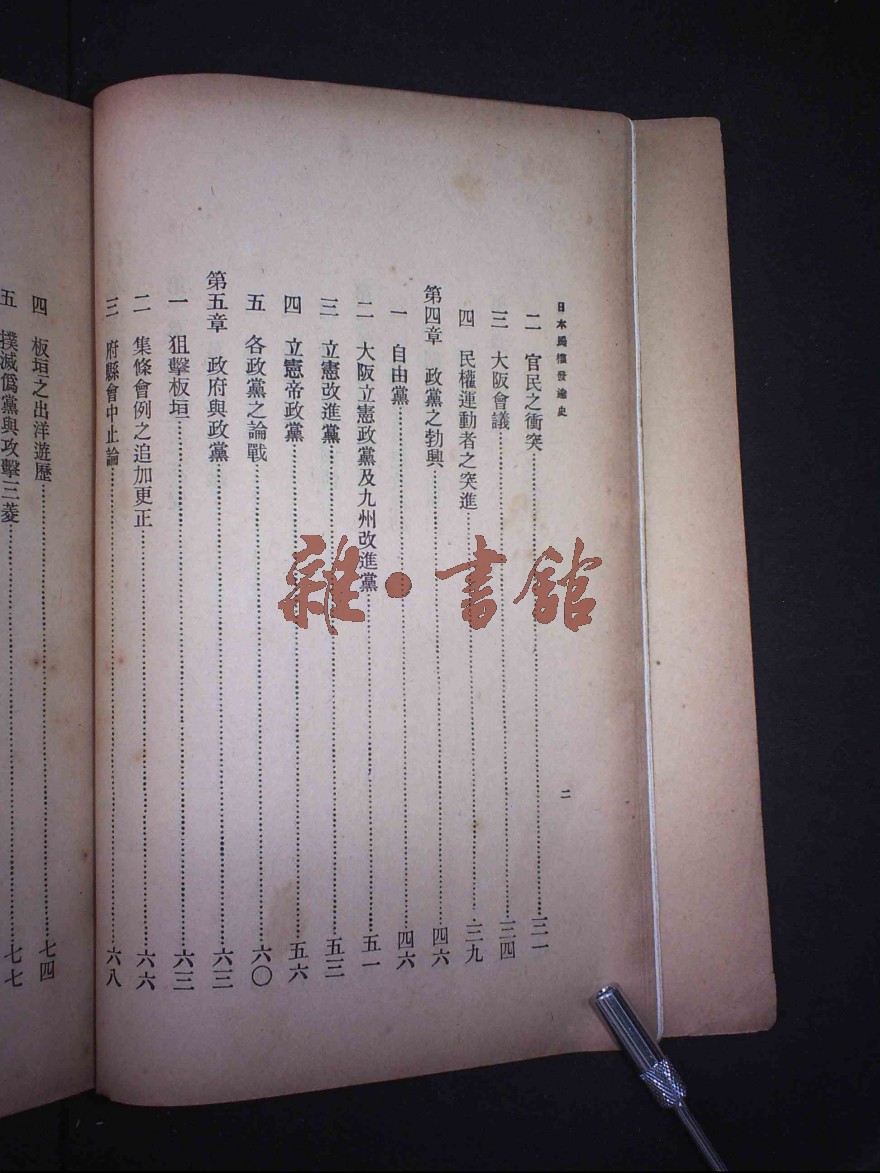 日本民權發達史
二
二 官民之衝突 三一
三 大阪會議 三四
四 民權運動者之突進 三九
第四章 政黨之勃興 四六
一 自由黨 四六
二 大阪立憲政黨及九州改進黨 五一
三 立憲改進黨 五三
四 立憲帝政黨 五六
五 各政黨之論戰 六〇
第五章 政府與政黨 六三
一 狙擊板垣 六三
二 集條會例之追加更正 六六
三 府縣會中止論 六八
四 板垣之出洋遊歷 七四
五 撲滅僞黨與攻擊三菱 七七
雜·書館